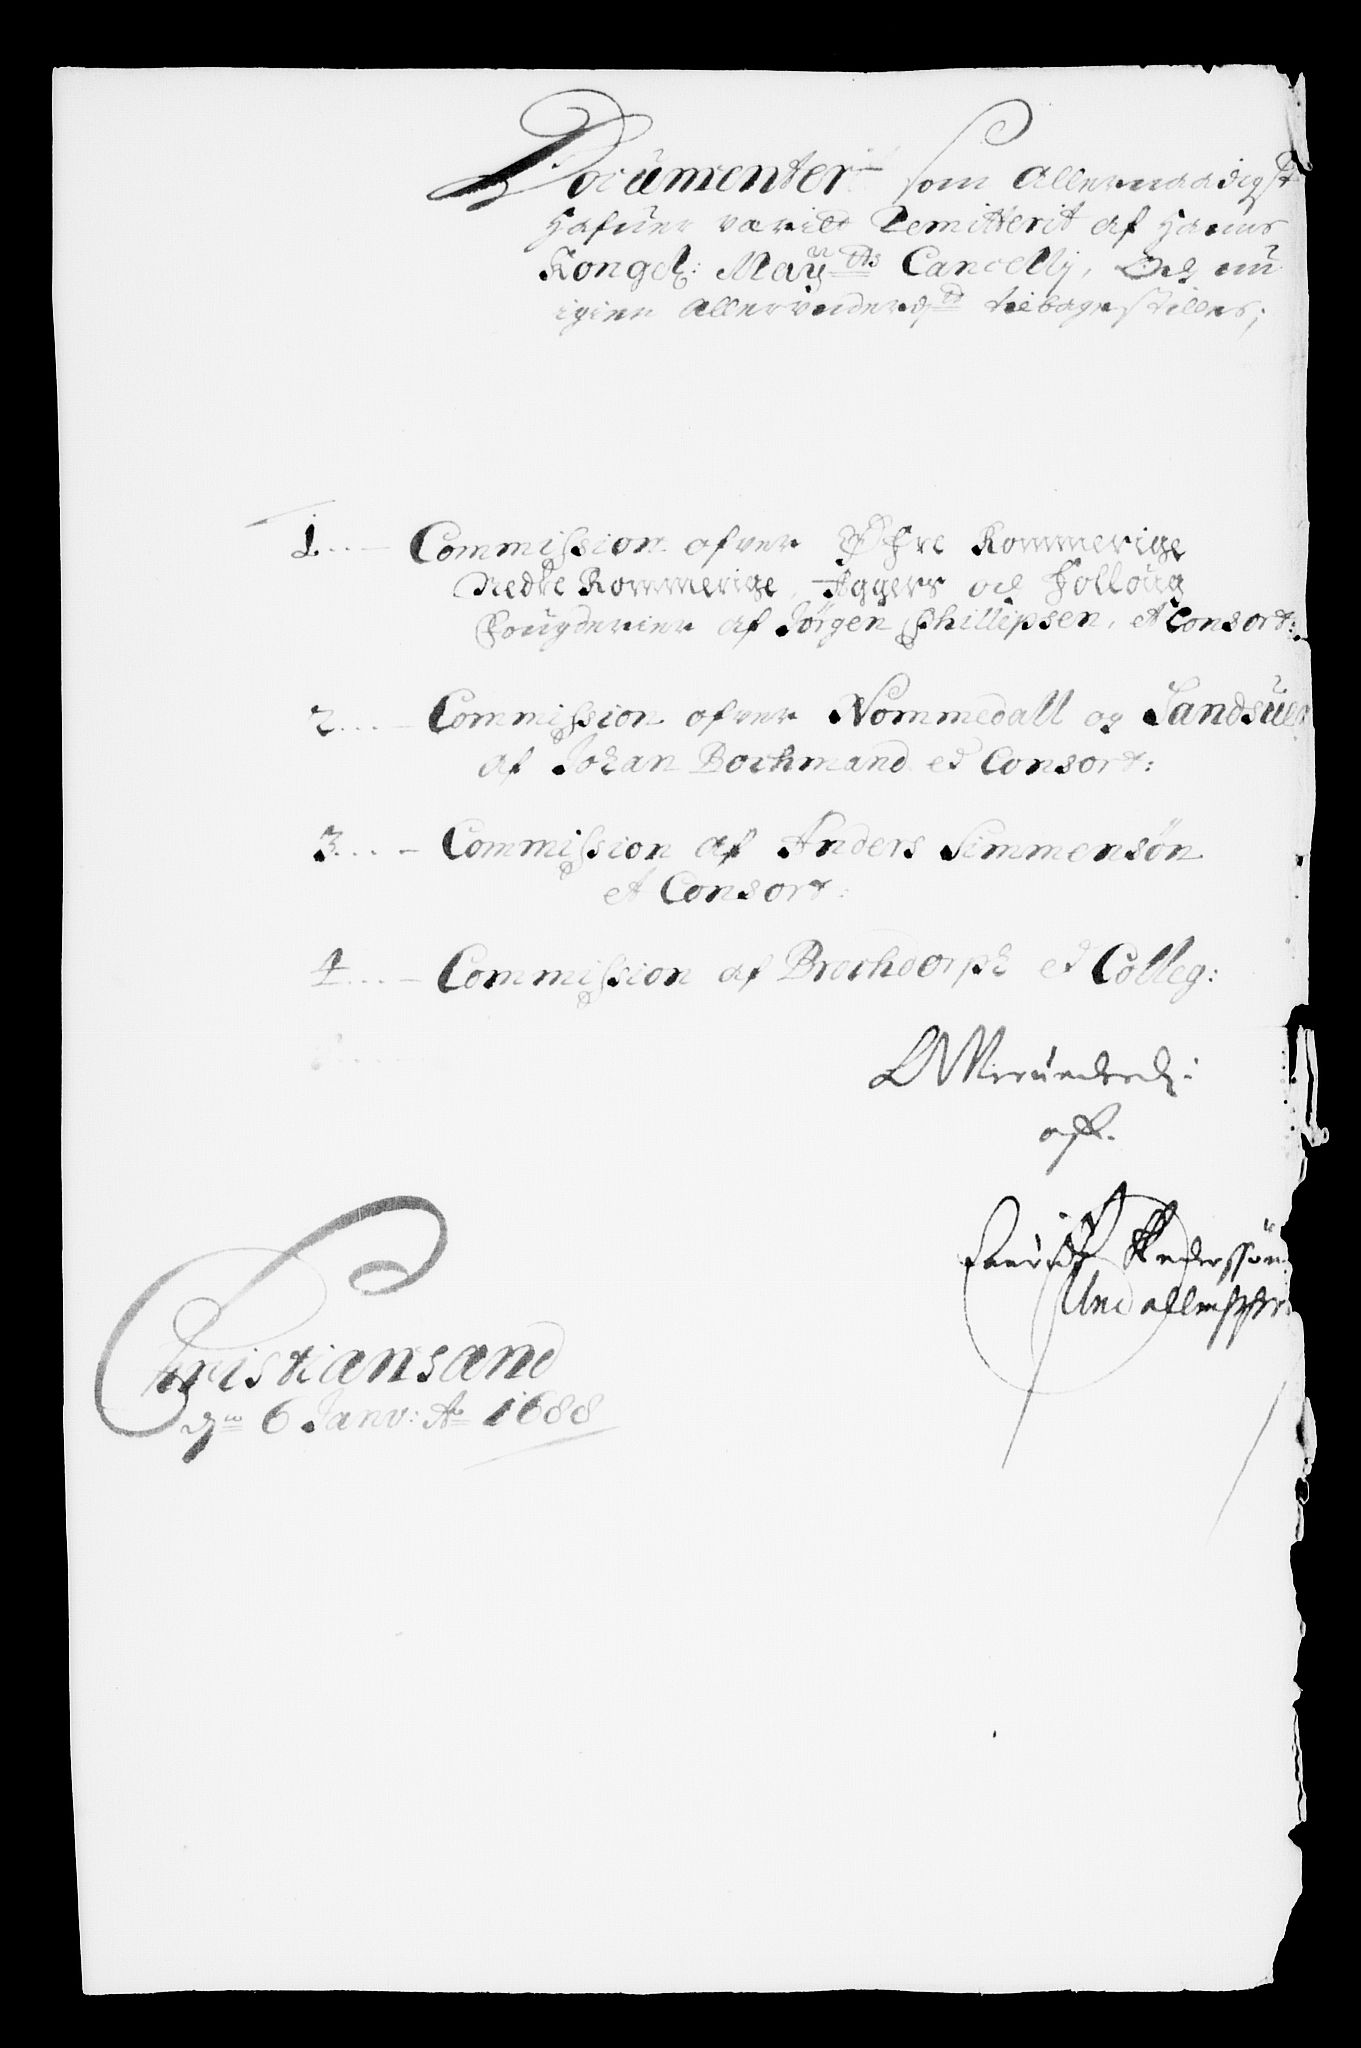 Documenter som Allernaadigst
Hafuer værit Remitterit af Hanns
Kongel: Mayᵗˢ Cancellj, Och nu
igien allervnderdᵗ tilbagestilles;
1... Commission ofver Øfre Rommerige
Nedre Rommerige, Aggers och Folloug
Fougderier af Jørgen Phillipsen, et Consort:
2... Commission ofver Nommedall og Sandsuer
af Johan Bochmand et Consort:
3... Commission af Anders Simmensøn
et Consort:
4... Commission af Brochdorph et Colleg:
af
Pederssøn
Undallensis
Christiansand
dⁿ 6 Janv: Aº 1688